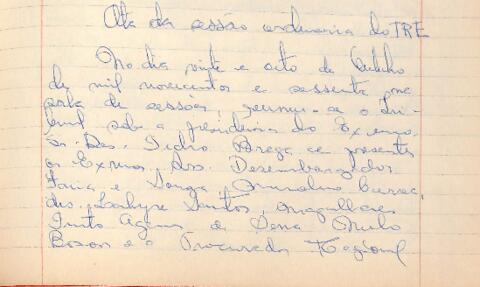 Ata da sessão ordinaria do TRE
No dia vinte e oito de Outubro
de mil novecentos e sessenta na
sala de sessões, reuniu-se o Tri-
bunal sob a presidencia do Exmo.
Sr. Des. Pedro Braga e presentes
os Exmos. Srs. Desembargador
Faria e Souza,
drs. Santos, Magalhães
Pinto, de Sena, Melo
e o Procurador Regional